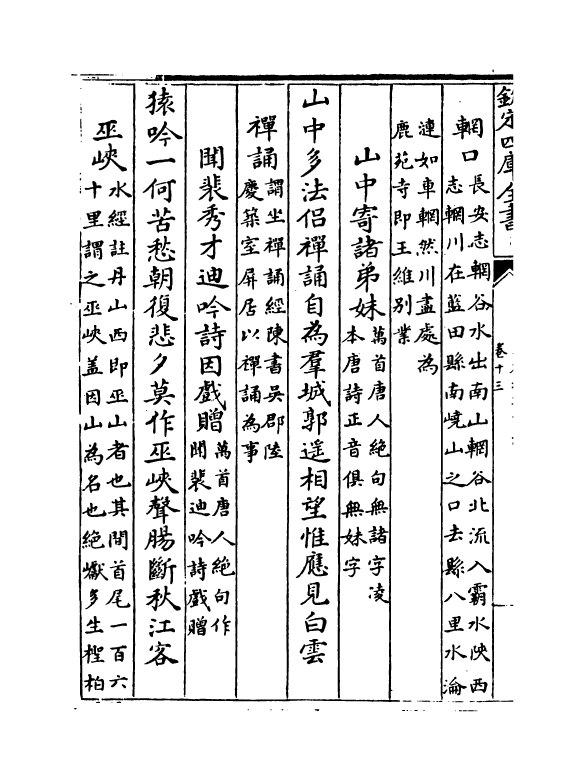 欽定四庫全書
卷十三
輞口長安志輞谷水出南山輞谷北流入霸水陜西
志輞川在藍田縣南嶢山之口去縣八里水淪
漣如車輞然川盡處為
鹿苑寺即王維别業
山中寄諸弟妹萬首唐人絶句無諸字凌
本唐詩正音俱無妹字
山中多法侣禪誦自為羣城郭遥相望惟應見白雲
禪誦謂坐禪誦經陳書吳郡陸
慶築室屏居以禪誦為事
聞裴秀才迪吟詩因戲贈萬首唐人絶句作
聞裴迪吟詩戲贈
猿吟一何苦愁朝復悲夕莫作巫峽聲腸斷秋江客
巫峽水經註丹山西即巫山者也其間首尾一百六
十里謂之巫峽盖因山為名也絶巘多生檉柏